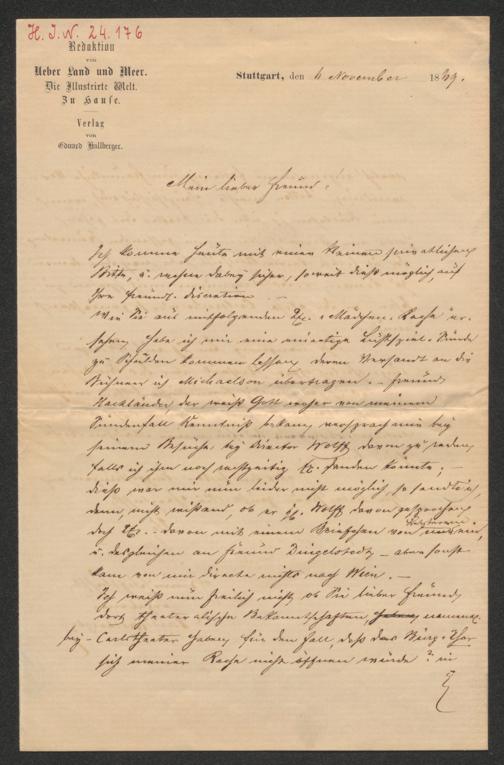 H. I. N. 24.176
Redaktion
von
Ueber Land und Meer.
Die Illustrirte Welt.
Zu Hause.
Verlag
von
Eduard Hallberger.
Stuttgart, den 4 November 1869.
Mein lieber Freund,
Ich komme heute mit einer kleinen privatlichen
Bitte, u. rechne dabey sicher, soweit dieß möglich, auf
Ihre freundl. discretion –
Wie Sie aus mitfolgenden Ex. "Mädchen-Rache" er-
sehen, habe ich mir eine einartige Lustspiel-Sünde
zu Schulden kommen lassen, deren Versandt an die
Bühnen ich Michaelson übertragen. – Freund
Hackländer, der weiß Gott woher von meinem
Sündenfall Kenntniß bekam, versprach mir bey
seinem Besuche bey Director Wolff davon zu reden,
falls ich ihm noch rechtzeitig Ex. senden könnte; –
dieß war mir nun leider nicht möglich, so sandte ich,
denn, nicht wissend, ob er H. Wolff davon gesprochen
doch Ex. davon mit einem Briefchen von ein,
u. desgleichen an Freund Dingelstedt – aber sonst
kam von mir directe nichts nach Wien. –
Ich weiß nun freilich nicht, ob Sie lieber Freund,
dort theatralische Bekanntschaften, haben, namentl.
bey – Carlstheater haben, für den Fall, daß das Burg-Thor
sich meiner Rache nicht öffnen würde? in